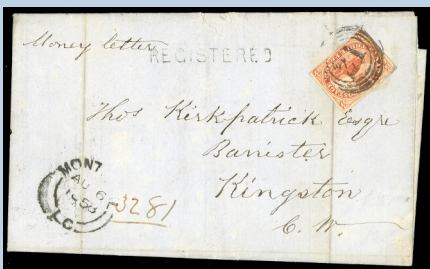 Money letter
REGISTERED
Thos Kirkpatrick Esqre
Banister
Kingston
C. W.
MONT
AU 6
1858
L.C
3281